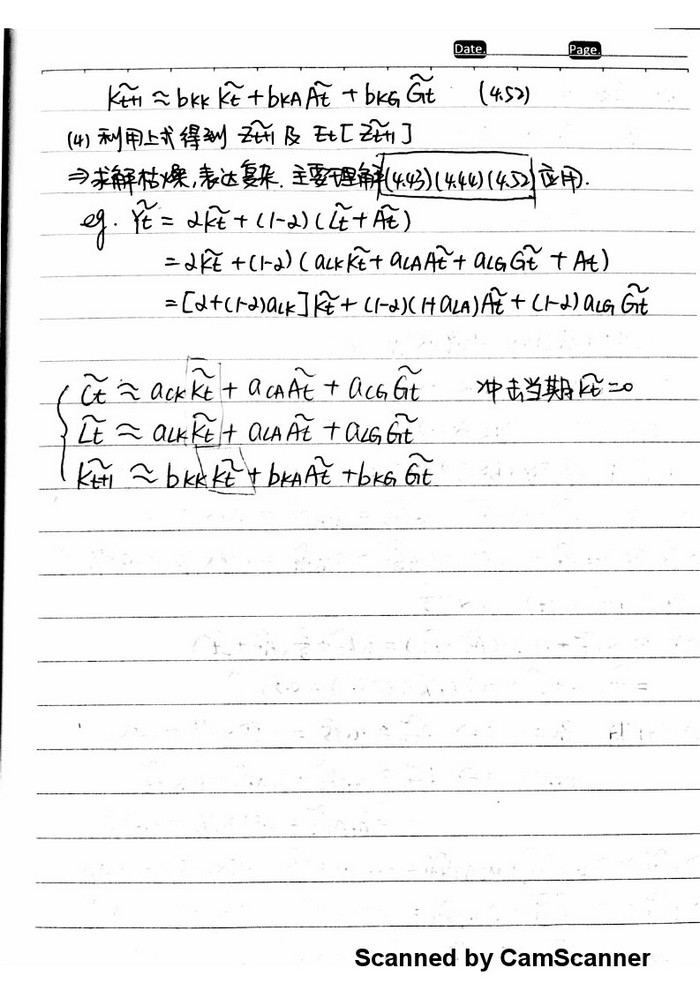 Date. Page.
K̃t+1 ≈ bKK K̃t + bKA Ãt + bKG G̃t (4.52)
(4) 利用上式得到 Z̃t+1 及 Et[Z̃t+1]
⇒求解枯燥,表达复杂. 主要理解(4.43)(4.44)(4.52)应用.
eg. Ỹt = αK̃t + (1-α)(L̃t + Ãt)
= αK̃t + (1-α)(aLK K̃t + aLA Ãt + aLG G̃t + At)
= [α+(1-α)aLK]K̃t + (1-α)(1+aLA)Ãt + (1-α)aLG G̃t
C̃t ≈ aCK K̃t + aCA Ãt + aCG G̃t 冲击当期K̃t=0
L̃t ≈ aLK K̃t + aLA Ãt + aLG G̃t
K̃t+1 ≈ bKK K̃t + bKA Ãt + bKG G̃t
Scanned by CamScanner